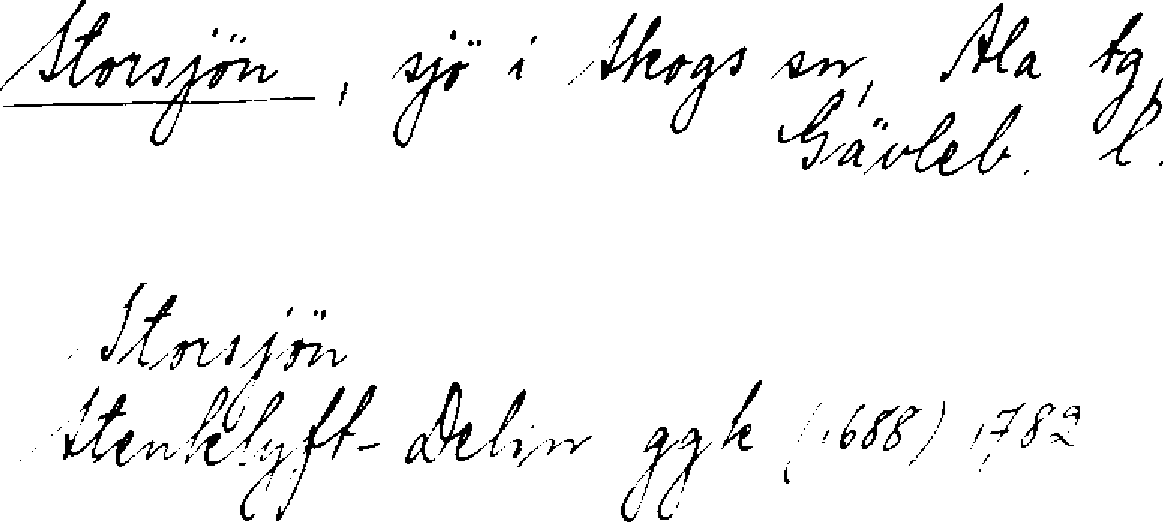 Storsjön, sjö i Skogs sn, Ala tg,
Gävleb. l.
Storsjön
Stenklyft- Delin ggk (1688) 1782